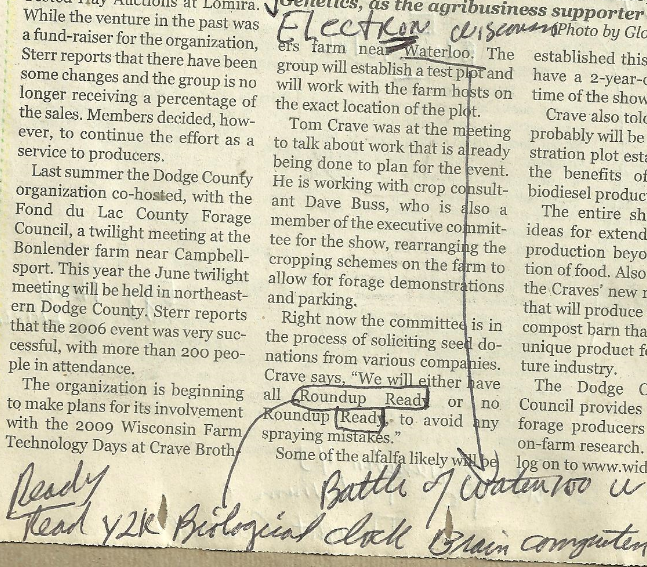 ested Hay Auctions at Lomira.
While the venture in the past was
a fund-raiser for the organization,
Sterr reports that there have been
some changes and the group is no
longer receiving a percentage of
the sales. Members decided, how-
ever, to continue the effort as a
service to producers.
Last summer the Dodge County
organization co-hosted, with the
Fond du Lac County Forage
Council, a twilight meeting at the
Bonlender farm near Campbell-
sport. This year the June twilight
meeting will be held in northeast-
ern Dodge County. Sterr reports
that the 2006 event was very suc-
cessful, with more than 200 peo-
ple in attendance.
The organization is beginning
to make plans for its involvement
with the 2009 Wisconsin Farm
Technology Days at Crave Broth
Genetics, as the agribusiness supporter
Electron
Photo by Glo
ers farm near Waterloo. The
group will establish a test plot and
will work with the farm hosts on
the exact location of the plot.
Tom Crave was at the meeting
to talk about work that is already
being done to plan for the event.
He is working with crop consult-
ant Dave Buss, who is also a
member of the executive commit-
tee for the show, rearranging the
cropping schemes on the farm to
allow for forage demonstrations
and parking.
Right now the committee is in
the process of soliciting seed do-
nations from various companies.
Crave says, “We will either have
all Roundup Ready or no
Roundup Ready, to avoid any
spraying mistakes.”
Some of the alfalfa likely will be
established this
have a 2-year-o
time of the show
Crave also told
probably will be
stration plot esta
the benefits of
biodiesel produc
The entire sh
ideas for extend
production beyo
tion of food. Also
the Craves’ new m
that will produce
compost barn tha
unique product fo
ture industry.
The Dodge C
Council provides
forage producers
on-farm research.
log on to www.wid
Ready
Battle of Waterloo W
Read Y2K Biological clock Brain computer